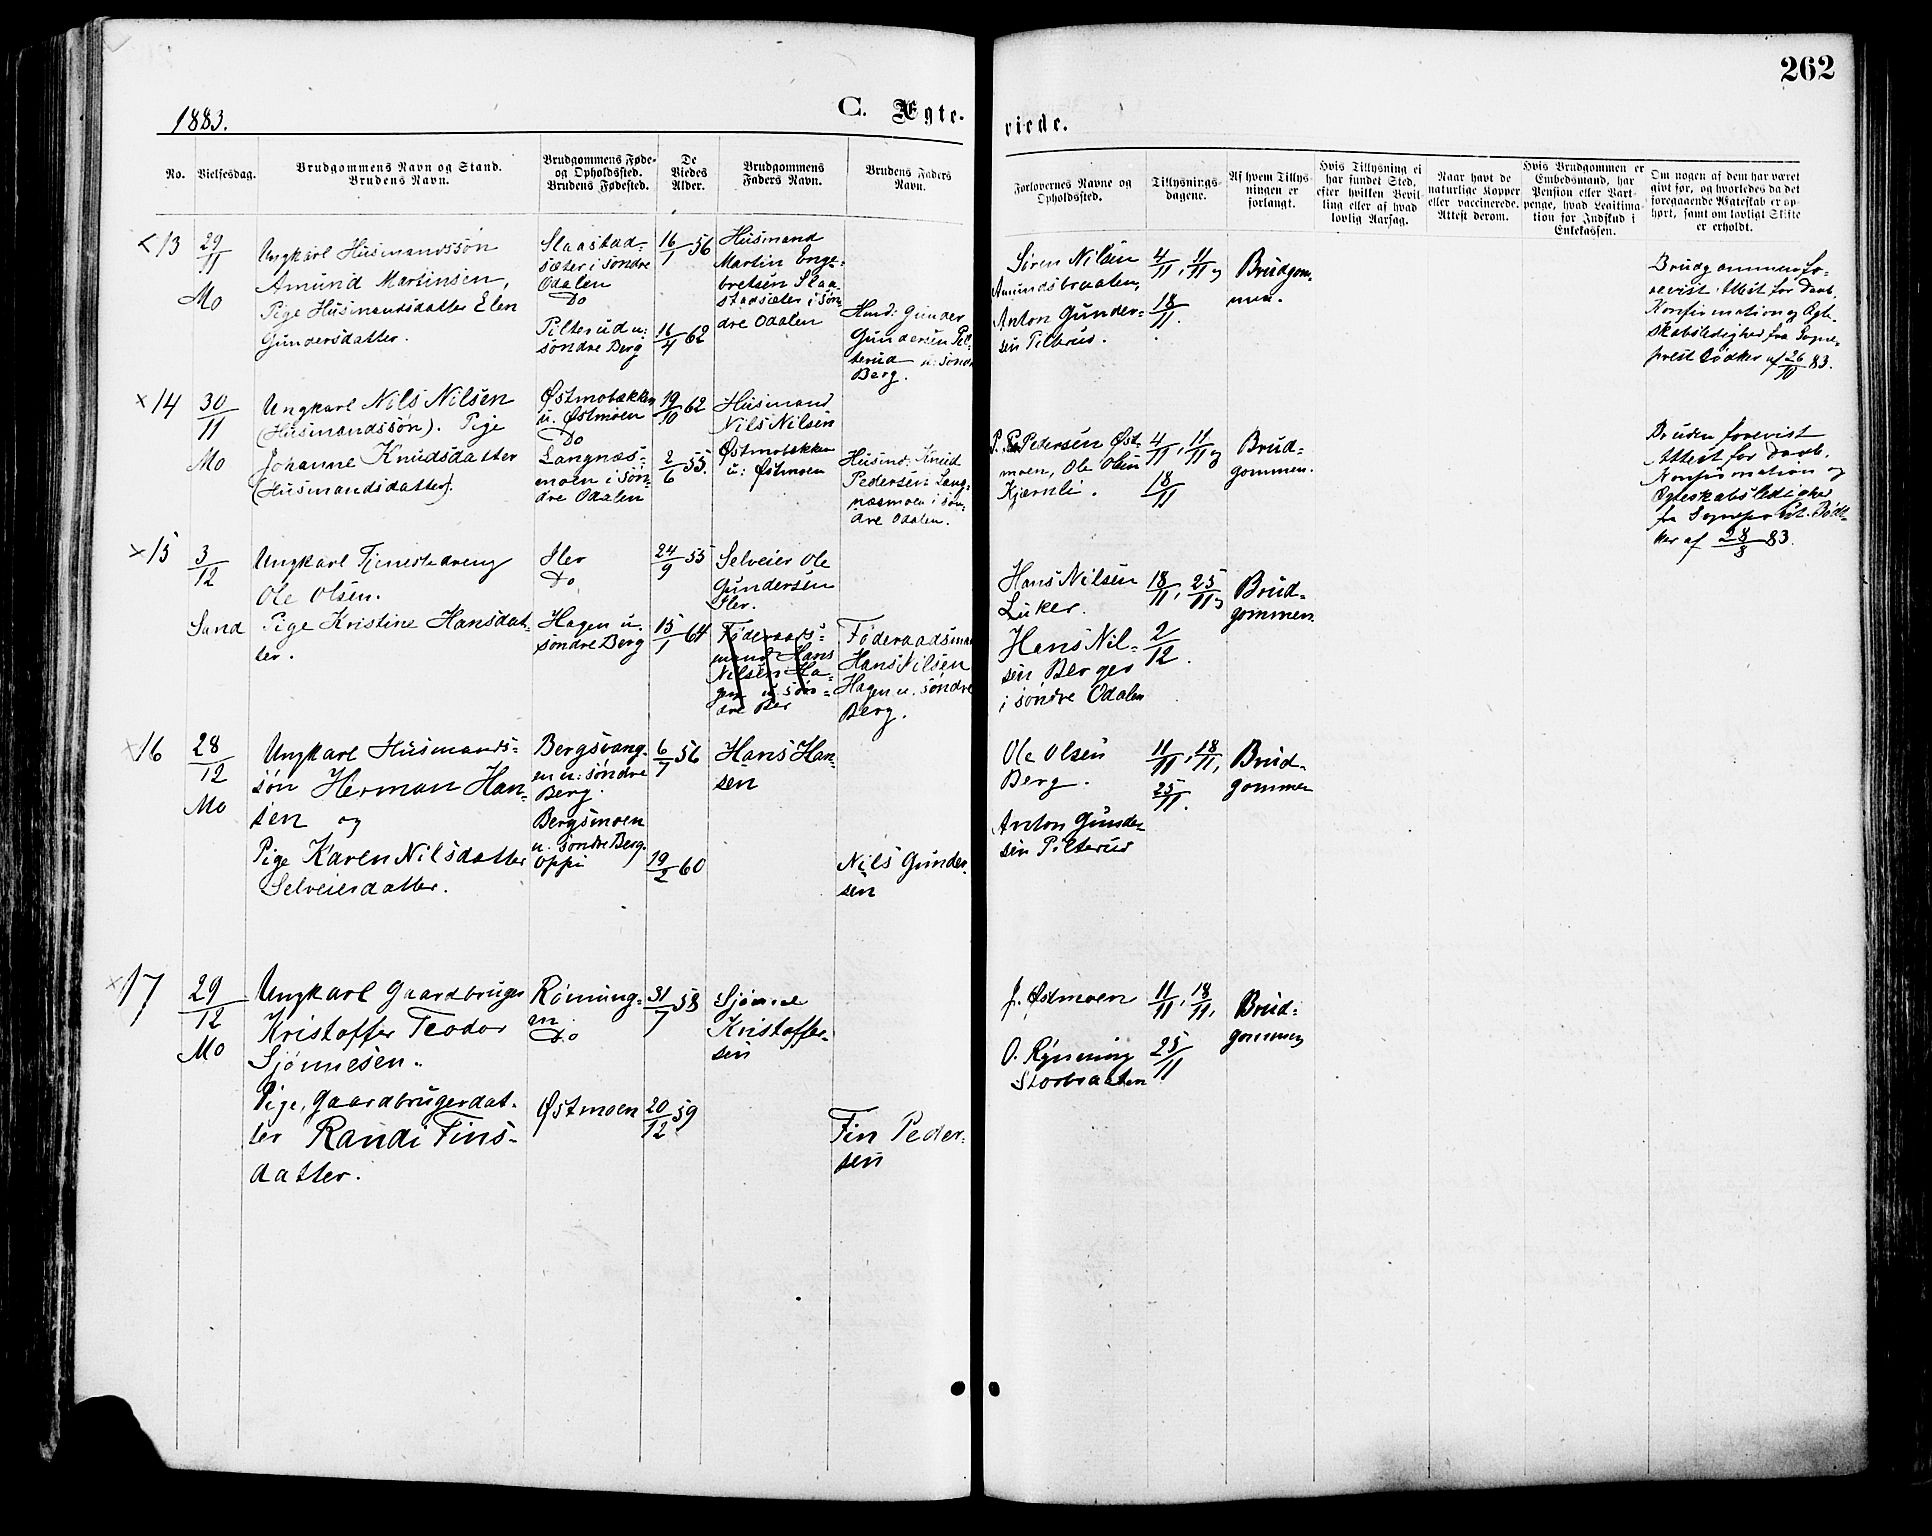 262
1883.
C. Ægte-
viede.
No.
Vielsesdag.
Brudgommens Navn og Stand.
Brudens Navn.
Brudgommens Føde-
og Opholdssted.
Brudens Fødested.
De
Viedes
Alder.
Brudgommens
Faders Navn.
Brudens Faders
Navn.
Forlovernes Navne og
Opholdssted.
Tillysnings-
dagene.
Af hvem Tillys-
ningen er
forlangt.
Hvis Tillysning ei
har fundet Sted,
efter hvilken Bevil-
ling eller af hvad
lovlig Aarsag.
Naar havt de
naturlige Kopper
eller vaccinerede.
Attest derom.
Hvis Brudgommen er
Embedsmand, har
Pension eller Vart-
penge, hvad Legitima-
tion for Indskud i
Enkekassen.
Om nogen af dem har været
gift før, og hvorledes da det
foregaaende Ægteskab er op-
hørt, samt om lovligt Skifte
er erholdt.
×13
29/11
Mo
Ungkarl Husmandssøn
Amund Martinsen,
Pige Husmandsdatter Elen
Gundersdatter.
Slaastad-
sæter i søndre
Odalen
Do
Pilterud u:
søndre Berg
16/1 56
16/4 62
Husmand
Martin Enge-
bretsen Slaa-
stadsæter i søn-
dre Odalen
Husd: Gunder
Gundersen Pil-
terud u: søndre
Berg.
Søren Nilsen
Amundsbraaten,
Anton Gunder-
sen Pilterud.
4/11, 11/11,
18/11.
Brudgom-
men.
Brudgommen fo-
revist Attest for Daab,
Konfirmation og Ægte-
skabsledighed fra Sogne-
prest Bødker af 26/10 83.
×14
30/11
Mo
Ungkarl Nils Nilsen
(Husmandssøn). Pige
Johanne Knudsdatter
(Husmandsdatter).
Østmobækken
u. Østmoen
Do
Langnæs-
moen i søn-
dre Odalen
19/10 62
2/6 55.
Husmand
Nils Nilsen
Østmobækken
u: Østmoen
Husmd: Knud
Pedersen Lang-
næsmoen i søn-
dre Odalen.
P. Pedersen Øst-
moen, Ole Olsen
Kjærnli.
4/11, 11/11,
18/11
Brud-
gommen.
Bruden forevist
Attest for Daab,
Konfirmation og
Ægteskabsledighed
fra Sogneprest Bødt-
ker af 28/8 83.
×15
3/12
Sand
Ungkarl Tjenestedreng
Ole Olsen.
Pige Kristine Hansdat-
ter.
Iler
Do
Hagen u.
søndre Berg
24/9 55
15/1 64
Selveier Ole
Gundersen
Iler.
Føderaads-
mand Hans
Nilsen Ha-
gen u søn-
dre Ber
Føderaadsmand
Hans Nilsen
Hagen u. søndre
Berg.
Hans Nilsen
Luker.
Hans Nil-
sen Berger
i søndre Odalen
18/11, 25/11,
2/12.
Brud-
gommen.
×16
28/12
Mo
Ungkarl Husmands-
søn Herman Han-
sen og
Pige Karen Nilsdatter
Selveierdatter.
Bergsvang-
en u: søndre
Berg.
Bergsmoen
u. søndre Berg.
Oppi
6/7 56
19/2 60
Hans Han-
sen
Nils Gunder-
sen
Ole Olsen
Berg.
Anton Gunder-
sen Pilterud
11/11, 18/11,
25/11.
Brud-
gommen
×17
29/12
Mo
Ungkarl Gaardbruger
Kristoffer Teodor
Sjønnesen.
Pige, Gaardbrugerdat-
ter Randi Fins-
datter.
Rønning-
en
Do
Østmoen
31/7 58
20/12 59
Sjønne
Kristoffer-
sen
Fin Peder-
sen
J. Østmoen
O. Rynning
Storbraaten
11/11, 18/11,
25/11
Brud-
gommen